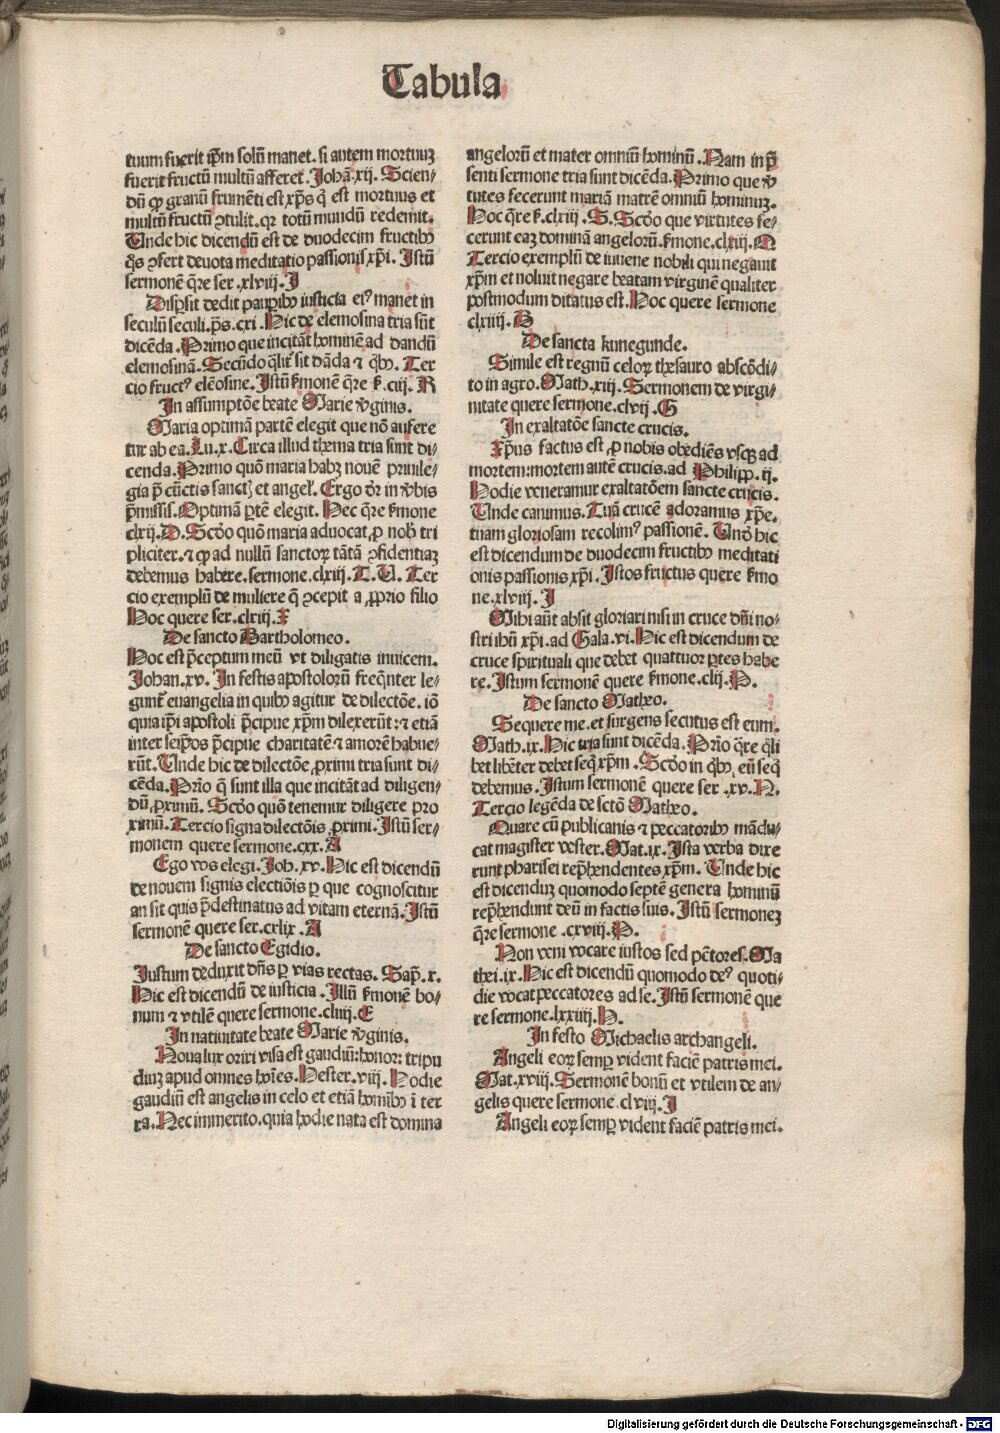 Tabula
tuum fuerit ip̄m solū manet. si autem mortuuꝫ
fuerit fructū multū afferet. Johā.xij. Scien⸗
dū ꝙ granū frumēti est xp̄s q̄ est mortuus et
multū fructū ꝯtulit. qꝛ totū mundū redemit.
Unde hic dicendū est de duodecim fructibꝰ
q̄s ꝯfert deuota meditatio passionis xp̄i. Istū
sermonē q̄re ser .xlviij. I
Disꝑsit dedit pauꝑibꝰ iusticia eiꝰ manet in
seculū seculi. p̄s. cxi. Hic de elemosina tria sūt
dicēda. Primo que incitāt hominē ad dandū
elemosinā. Secūdo q̄lit̄ sit dāda ⁊ q̄bꝰ. Ter
cio fructꝰ elēosine. Istū ẜmonē q̄re ẜ. ciij. R
In assumptōe beate Marie v̄ginis.
Maria optimā partē elegit que nō aufere
tur ab ea. Lu.x. Circa illud thema tria sunt di⸗
cenda. Primo quō maria habꝫ nouē priuile⸗
gia p̄ cūctis sanctꝭ et angeƚ. Ergo d̄r in v̄bis
p̄missis. Optimā ꝑtē elegit. Hec q̄re ẜmone
clxij. D. Scdō quō maria aduocat ꝓ nob̄ tri
pliciter. ⁊ ꝙ ad nullū sanctoꝝ tātā ꝯfidentiaꝫ
debemus habere. sermone. clxiij. T. V. Ter
cio exemplū de muliere q̄ ꝯcepit a ꝓprio filio
Hoc quere ser. clxiij. X
De sancto Bartholomeo.
Hoc est p̄ceptum meū vt diligatis inuicem.
Johan. xv. In festis apostolorū freq̄nter le⸗
gunt᷑ euangelia in quibꝰ agitur de dilectōe. iō
quia ip̄i apostoli p̄cipue xp̄m dilexerūt: ⁊ etiā
inter seip̄os p̄cipue charitatē ⁊ amorē habue⸗
rūt. Unde hic de dilectōe ꝓximi tria sunt di⸗
cēda. Prīo q̄ sunt illa que incitāt ad diligen⸗
dū ꝓximū. Scdō quō tenemur diligere pro
ximū. Tercio signa dilectōis ꝓximi. Istū ser⸗
monem quere sermone. cxx. A
Ego vos elegi. Joh. xv. Hic est dicendū
de nouem signis electiōis ꝑ que cognoscitur
an sit quis p̄destinatus ad vitam eternā. Istū
sermonē quere ser. cxlix. A
De sancto Egidio.
Iustum deduxit dn̄s ꝑ vias rectas. Sap̄. x.
Hic est dicendū de iusticia. Illū ẜmonē bo⸗
num ⁊ vtilē quere sermone. cliiij. E
In natiuitate beate Marie v̄ginis.
Noua lux oriri visa est gaudiū: honor: tripu
diuꝫ apud omnes hoīes. Hester. viij. Hodie
gaudiū est angelis in celo et etiā hoīnibꝰ ī ter
ra. Nec immerito. quia hodie nata est domina
angelorū et mater omniū hominū. Nam in p̄
senti sermone tria sunt dicēda. Primo que v̄
tutes fecerunt mariā matrē omniū hominuꝫ.
Hoc q̄re ẜ. clxiij. S. Scdō que virtutes fe⸗
cerunt eaꝫ dominā angelorū. ẜmone. clxiij.
Tercio exemplū de iuuene nobili qui negauit
xp̄m et noluit negare beatam virginē qualiter
postmodum ditatus est. Hoc quere sermone
clxiiij. B
De sancta kunegunde.
Simile est regnū celoꝝ thesauro abscōdi⸗
to in agro. Math. xiij. Sermonem de virgi⸗
nitate quere sermone. clvij. G
In exaltatōe sancte crucis.
Xp̄us factus est ꝓ nobis obediēs vsqꝫ ad
mortem: mortem autē crucis. ad Philipp. ij.
Hodie veneramur exaltatōem sancte crucis.
Unde canimus. Tuā crucē adoramus xp̄e.
tuam gloriosam recolimꝰ passionē. Und̄ hic
est dicendum de duodecim fructibꝰ meditati
onis passionis xp̄i. Istos fructus quere ẜmo
ne. xlviij. I
Mihi aūt absit gloriari nisi in cruce dn̄i no⸗
stri ihū xp̄i. ad Gala. vi. Hic est dicendum de
cruce spirituali que debet quattuor ꝑtes habe
re. Istum sermonē quere ẜmone. clij. P.
De sancto Matheo.
Sequere me. et surgens secutus est eum.
Math. ix. Hic tria sunt dicēda. Prīo q̄re q̄li
bet libēter debet seq̄ xp̄m. Scdō in q̄bꝰ eū seq̄
debemus. Istum sermonē quere ser .xv. N.
Tercio legēda de sctō Matheo.
Quare cū publicanis ⁊ peccatoribꝰ mādu⸗
cat magister vester. Mat. ix. Ista verba dixe
runt pharisei rep̄hendentes xp̄m. Unde hic
est dicenduꝫ quomodo septē genera hominū
rep̄hendunt deū in factis suis. Istū sermoneꝫ
q̄re sermone. cxviij. P.
Non veni vocare iustos sed pc̄tores. Ma
thei. ix. Hic est dicendū quomodo deꝰ quoti⸗
die vocat peccatores ad se. Istū sermonē que
re sermone. lxxiiij. H.
In festo Michaelis archangeli.
Angeli eoꝝ semꝑ vident faciē patris mei.
Mat. xviij. Sermonē bonū et vtilem de an⸗
gelis quere sermone. clviij. I
Angeli eoꝝ semꝑ vident faciē patris mei.
Digitalisierung gefördert durch die Deutsche Forschungsgemeinschaft - DFG